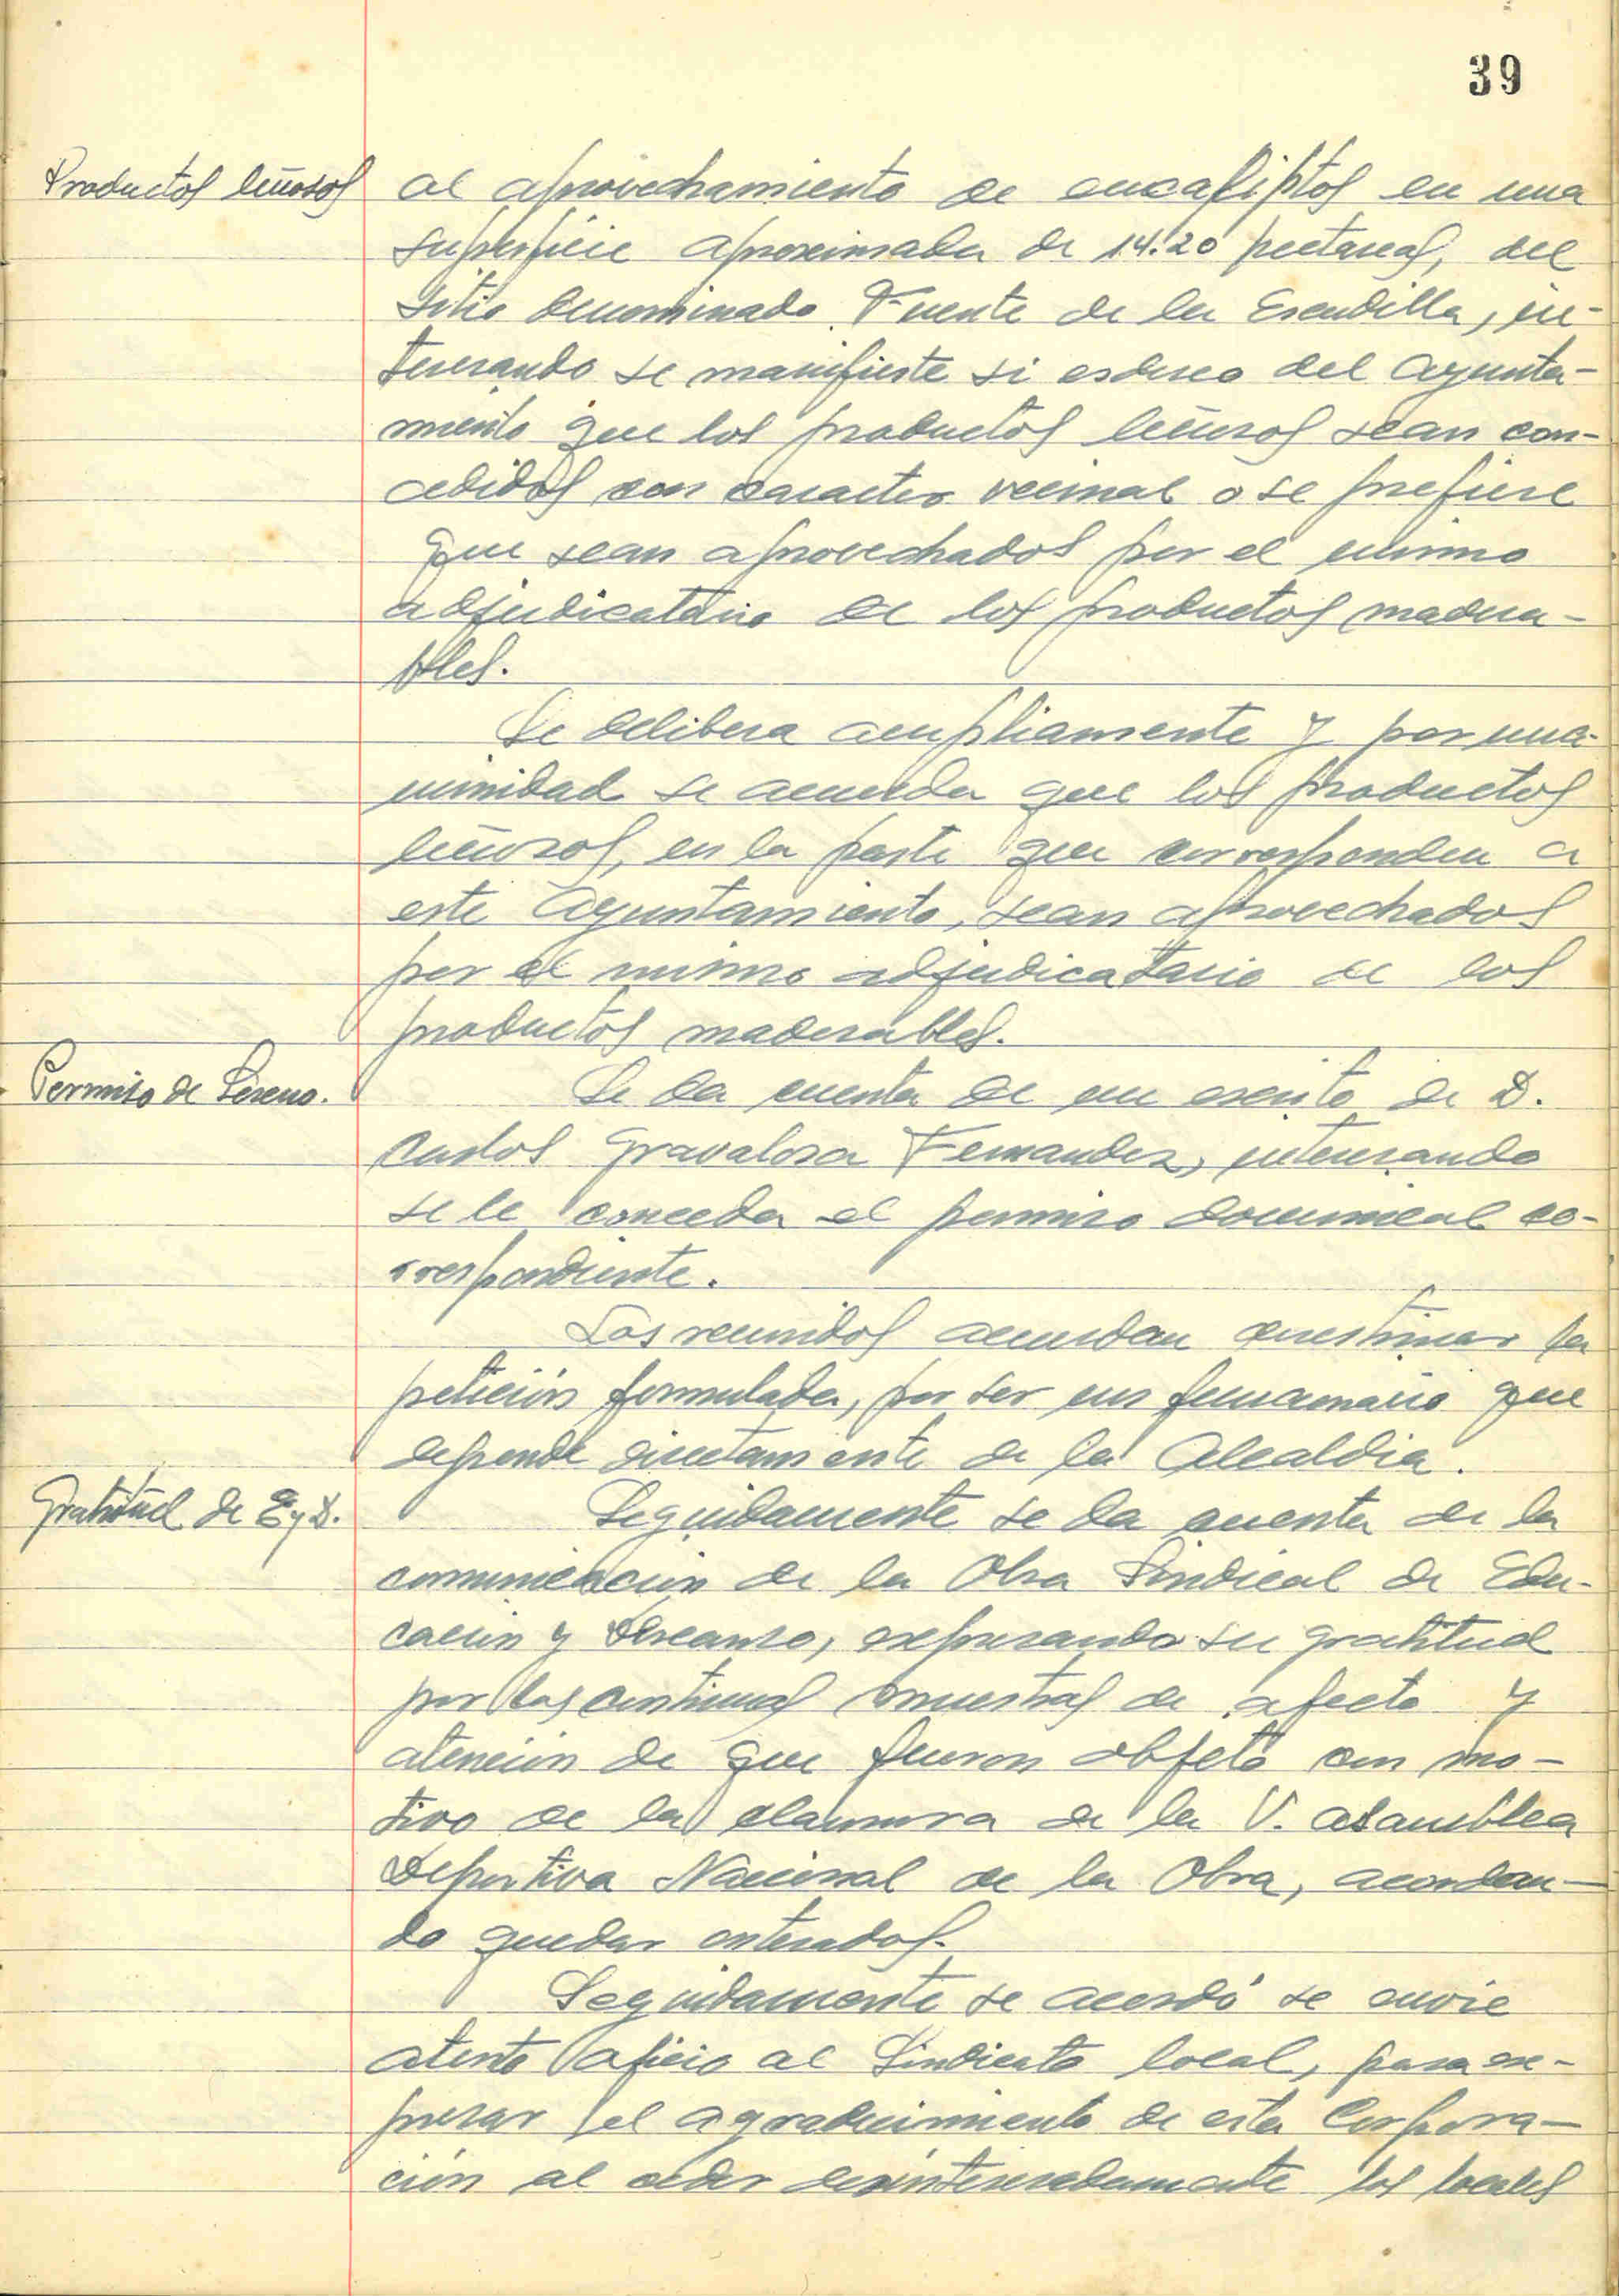 39
Productos leñosos
al aprovechamiento de eucaliptos en una
superficie aproximada de 14.20 hectareas, del
sitio denominado Fuente de la Escudilla, in-
teresando se manifieste si es deseo del Ayunta-
miento que los productos leñosos sean con-
cedidos con caracter vecinal o se prefiere
que sean aprovechados por el mismo
adjudicatario de los productos madera-
bles.
Se delibera ampliamente y por una-
nimidad se acuerda que los productos
leñosos, en la parte que corresponden a
este Ayuntamiento, sean aprovechados
por el mismo adjudicatario de los
productos maderables.
Permiso de Sereno.
Se da cuenta de un escrito de D.
Carlos Gravalosa Fernandez, interesando
se le conceda el permiso dominical co-
rrespondiente.
Los reunidos acuerdan la
petición formulada, por ser un funcionario que
depende directamente de la Alcaldia.
Gratitud de E y D.
Seguidamente se da cuenta de la
comunicación de la Obra Sindical de Edu-
cación y Descanso, expresando su gratitud
por las continuas muestras de afecto y
atención de que fueron objeto con mo-
tivo de la clausura de la V. asamblea
Deportiva Nacional de la Obra, acordan-
do quedar enterados.
Seguidamente se acordó se envie
atento oficio al Sindicato local, para ex-
presar el agradecimiento de esta Corpora-
ción al ceder desinteresadamente los locales